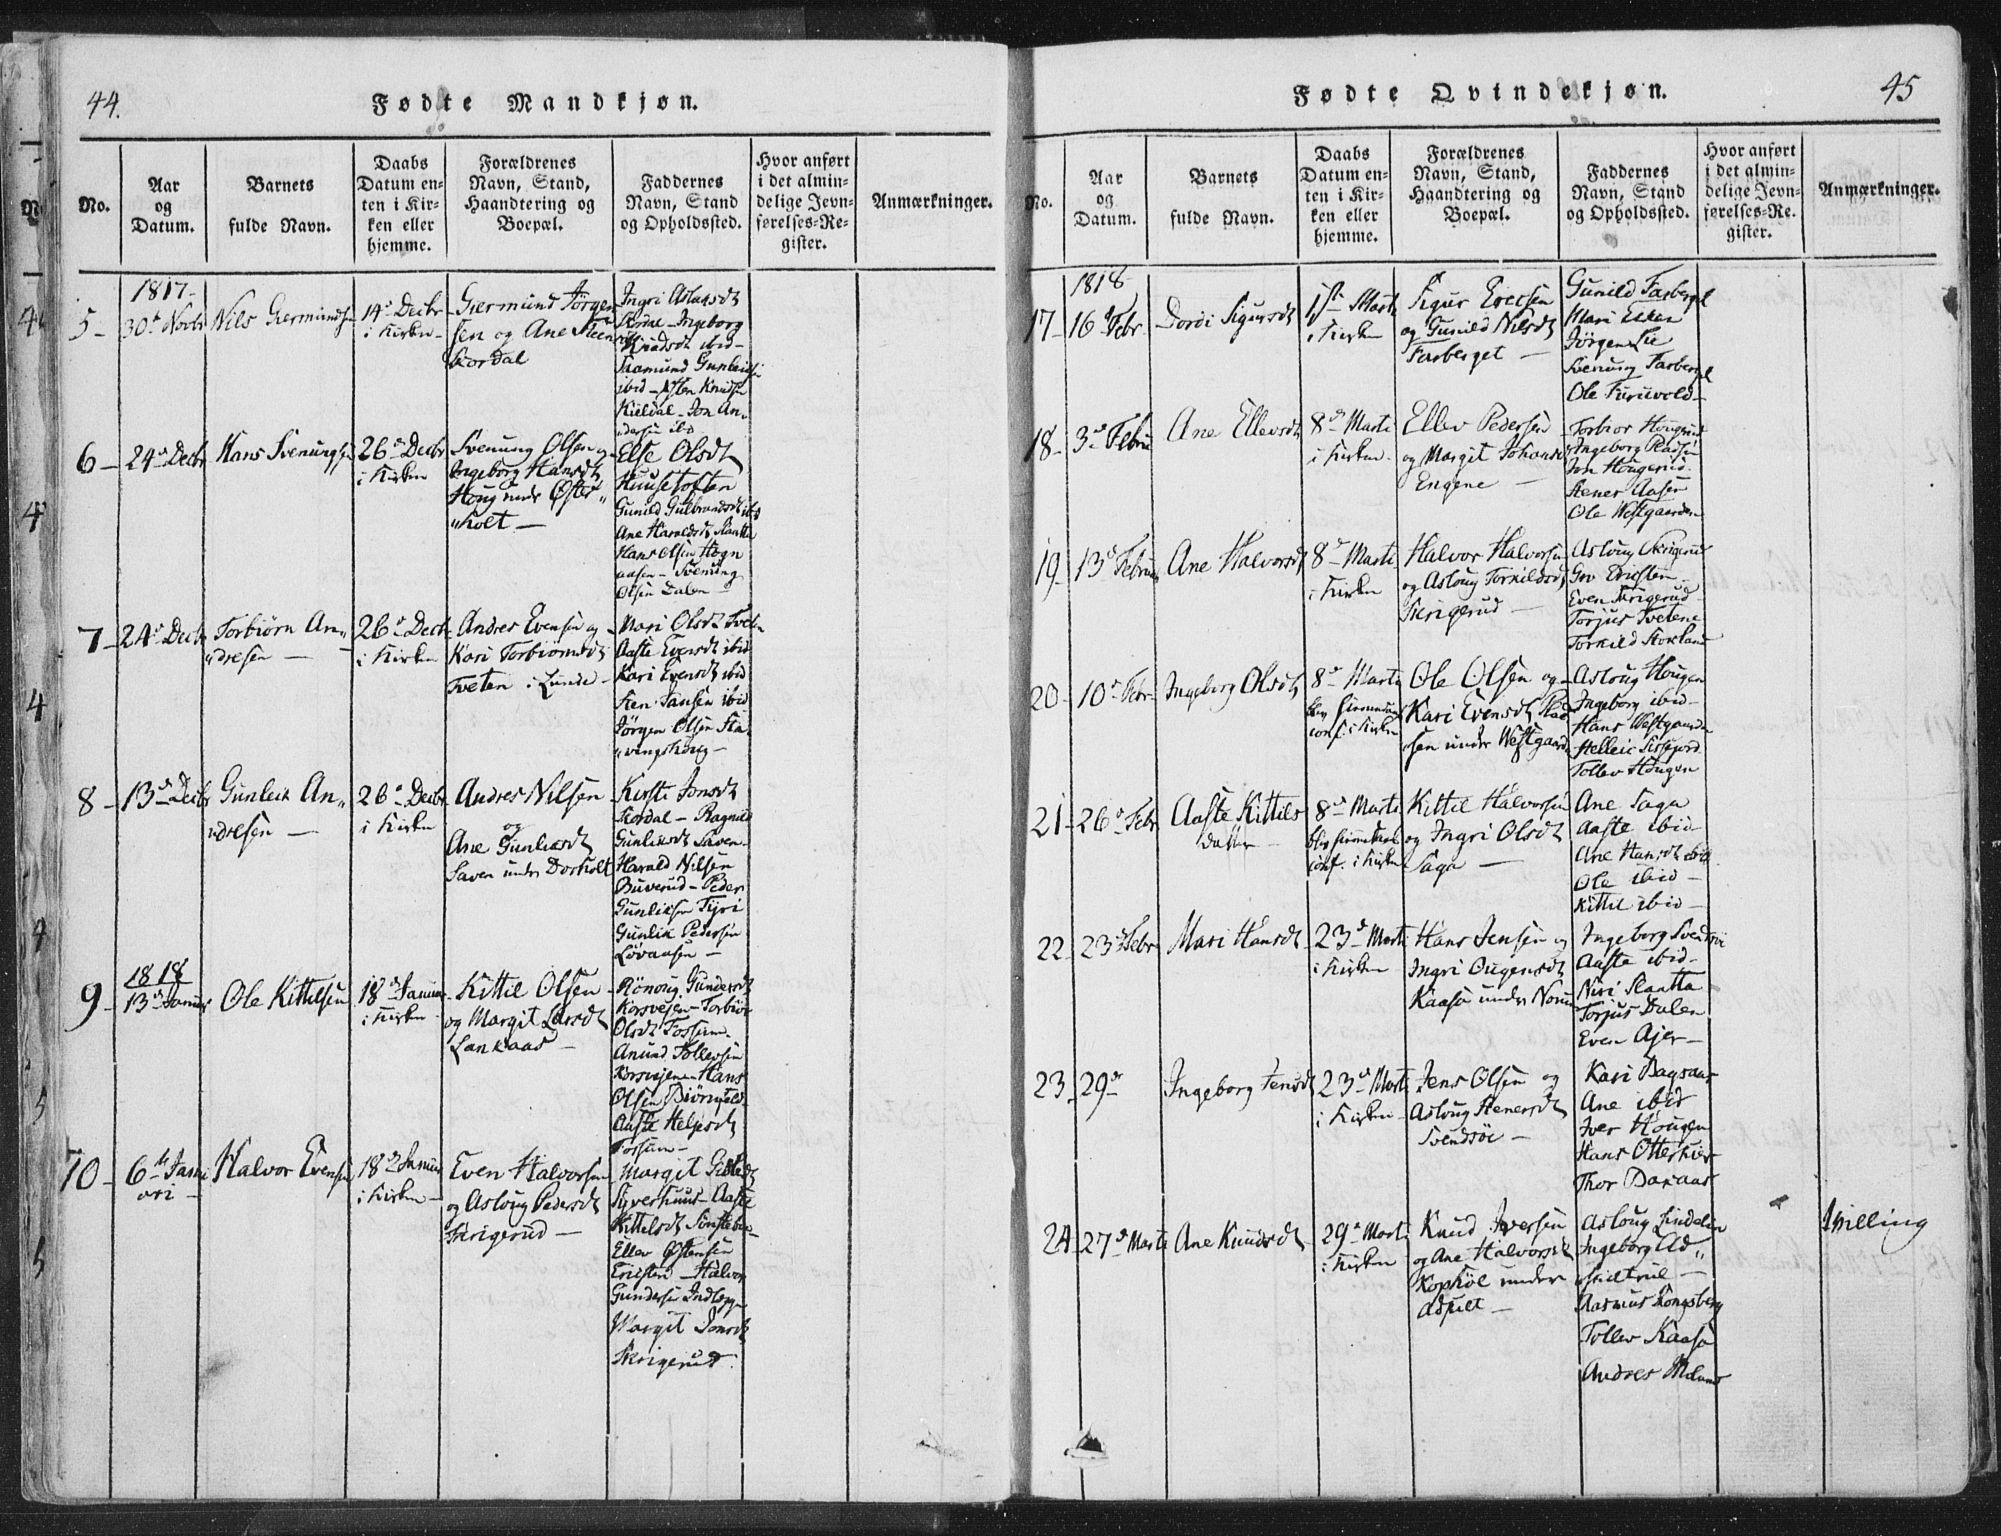 44.
Fødte Mandkjøn.
No.
Aar
og
Datum.
Barnets
fulde Navn.
Daabs
Datum en-
ten i Kir-
ken eller
hjemme.
Forældrenes
Navn, Stand,
Haandtering og
Boepæl.
Faddernes
Navn, Stand
og Opholdssted.
Hvor anført
i det almin-
delige Jevn-
førelses-Re-
gister.
Anmærkninger.
1817
5-
30te Novbr
Nils Giermundsen
14de Decbr
i Kirken
Giermund Jørgen
sen og Ane Steens
Skordal
Ingri Aslaksdt
Skordal - Ingeborg
Knudsdt ibid -
Saamund Gunleiks
ibid - Østen Knudsen
Kieldal - Jon An-
dersen ibd
6-
24de Decbr
Hans Svenungsen
26de Decbr
i Kirken
Svenung Olsen og
Ingeborg Hansdt
Houg under Øster"
"holt -
Else Olsdt
Huusetoften
Gunild Gulbrandsdt ibd
Ane Haraldsdt Slaatta
Hans Olsen Høgn
aasen - Svenung
Olsen Dalen -
7-
24de Decbr
Torbiörn An"
"dresen -
26de Decb
i Kirken
Andres Evensen og
Kari Torbiörnsdt
Tveten i Lunde -
Mari Olsdt Tveten
Aaste Evensdt ibid
Kari Evensdt ibid
Sten Jansen ibid
Jörgen Olsen Sta"
"vingshoug -
8-
13de Decbr
Gunleik An"
"dresen -
26de Decbr
i Kirken
Andres Nilsen
og
Ane Gunleksdt
Saven under Dorholt
Kirsti Jonsdt
Skordal - Ragnild
Gunliksdt Saven
Harald Nilsen
Buverud - Peder
Gunliksen Tyri
Gunlik Pedersen
Løvaasen -
1818
9-
13de Januar
Ole Kittilsen
18de Januar
i Kirken
Kittil Olsen
og Margit Larsdt
Lankaas -
Rönoug Gundersdt
Korsvejen - Torbiör
Olsdt Fossum
Anund Tollevsen
Korsvejen - Hans
Olsen Biörnvald
Aaste Heljesdt
Fossum -
10-
6te Janu
ari -
Halvor Evensen
18de Januar
i Kirken -
Even Halvorsen
og Asloug Pedersdt
Skrigerud -
Margit Gisledt
Syverhuus - Aaste
Kittelsdt Sönsteböe
Ellev Østensen
Ericsten - Halvor
Gundersen Indlæggen
Margit Jonsdt
Skrigerud.
45
Fødte Qvindekjøn.
No.
Aar
og
Datum.
Barnets
fulde Navn.
Daabs
Datum en-
ten i Kir-
ken eller
hjemme.
Forældrenes
Navn, Stand,
Haandtering og
Boepæl.
Faddernes
Navn, Stand
og Opholdssted.
Hvor anført
i det almin-
delige Jevn-
førelses-Re-
gister.
Anmærkninger.
1818
17-
16de Febr.
Dordi Sigursdt
1ste Marti
i Kirken
Sigur Ericsen
og Gunild Nilsdt
Farberget -
Gunild Farbergt
Mari Eiken
Jörgen Lie
Svenung Farbergt
Ole Furuvold -
18-
3de Febru
Ane Ellevsdt
8de Marti
i Kirken -
Ellev Pedersen
og Margit Johansdt
Engene -
Torbior Hougerud
Ingeborg Pladsen
Jon Hougerud
Stener Aasen
Ole Westgaarden
19-
13de Februar
Ane Halvorsdt
8de Marti
i Kirken
Halvor Halvorsen
og Asloug Torkildsdt
Skrigerud -
Asloug Skrigerud
Gro Ericsten
Even Skrigerud
Torjus Tvetene
Torkild Stokland
20-
10de Febr
Ingeborg Olsdt
8de Marti
blev hiemmedøbt
conf. i Kirken
Ole Olsen og
Kari Evensdt Plad
sen under Westgaard
Asloug Hougen
Ingeborg ibid -
Hans Westgaarden
Helleic Sissejord
Tollev Hougen
21-
26de Febr
Aaste Kittils
Datter -
8de Marti
blev hiemmedøbt
conf. i Kirken
Kittil Halvorsen
og Ingri Olsdt
Saga -
Ane Saga
Aaste ibid -
Ane Hansdt ibid
Ole ibid -
Kittil ibid -
22-
23de Febr
Mari Hansdt
23de Marti
i Kirken
Hans Jensen og
Ingri Ougensdt
Kaasa under Norum
Ingeborg Svendsöi
Aaste ibid -
Niri Slaatta
Torjus Dalen
Even Ajer -
23-
29de
Ingeborg Jensdt
23de Marti
i Kirken -
Jens Olsen og
Asloug Stenersdt
Svendsöe -
Kari Bagaas
Ane ibid
Iver Hougen
Hans Otterhier
Thor Bakaas
24-
27de Marti
Ane Knudsdt
29de Marti
i Kirken
Knud Iversen
og Ane Halvorsdt
Kophöl under
Adsilt -
Asloug Lindelien
Ingeborg Ad"
Rasmus Kongsberg
Tollev Kaasa
Andres Meland
tvilling